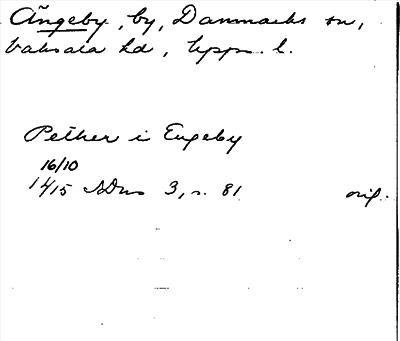 Ängeby, by, Danmarks sn,
Vaksala hd, Upps. l.
Pether i Engeby
16/10
1415 SDns 3, s. 81 orig.